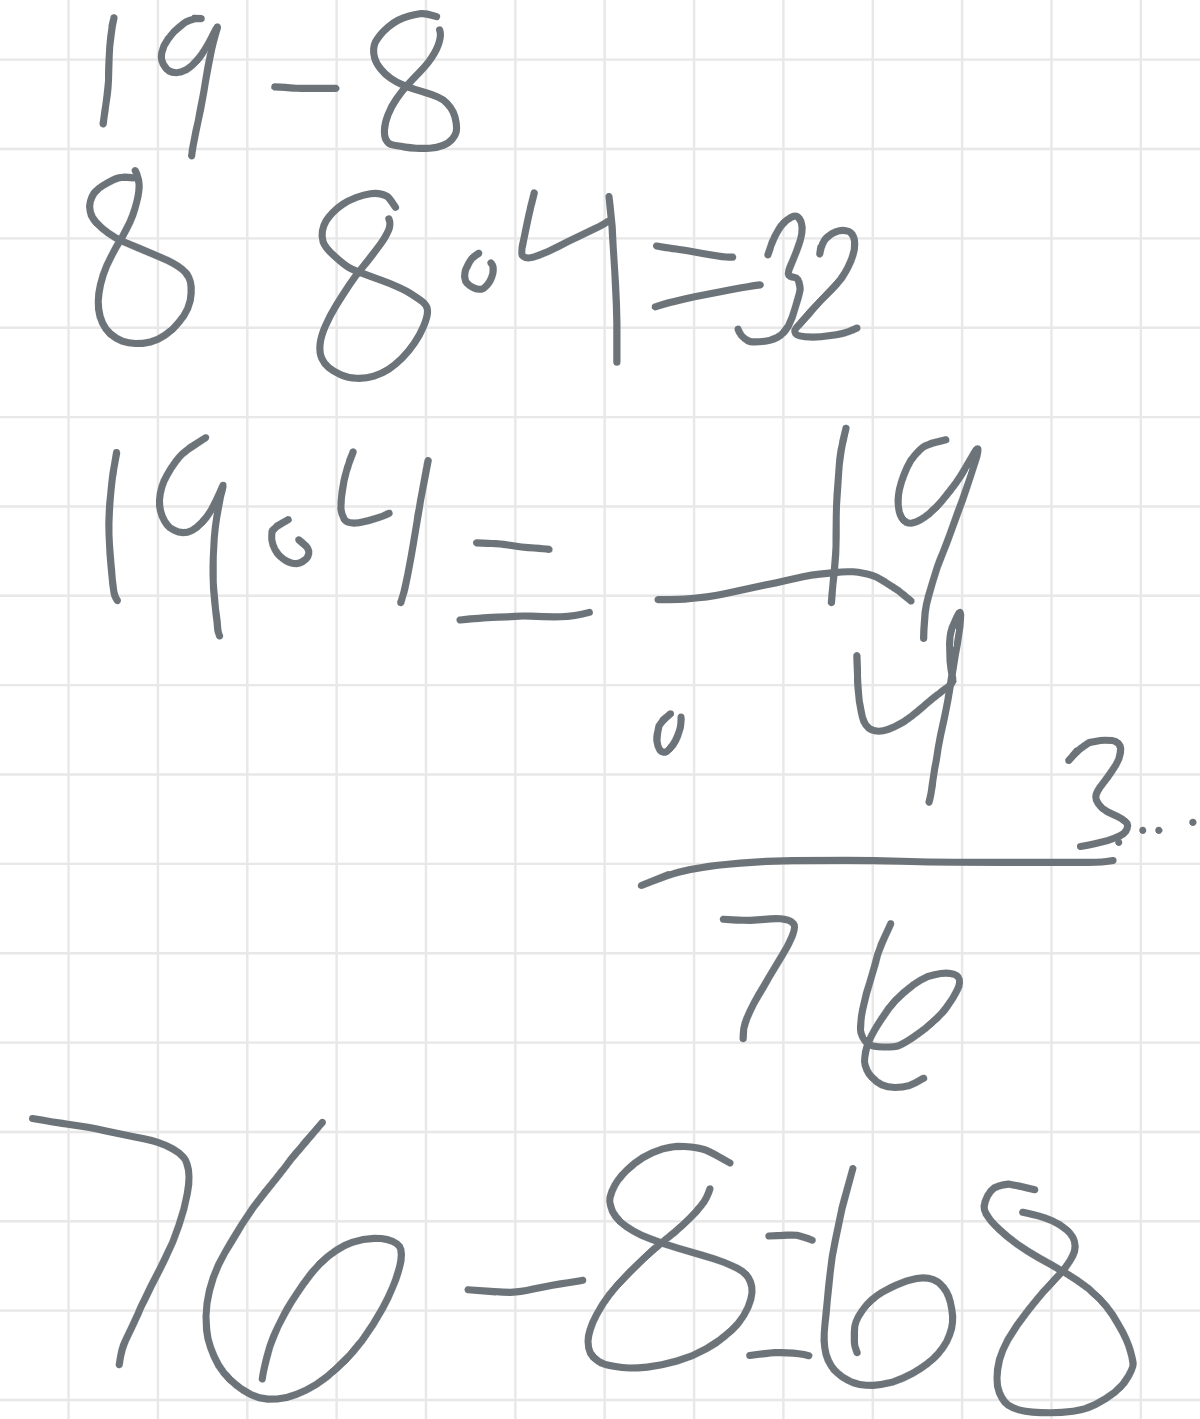 19-8
8 8∘4=32
19∘4= 19
∘ 4
3....
76
76-8=68